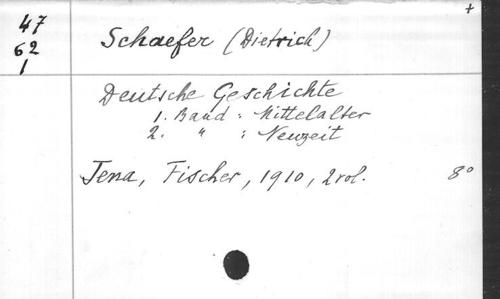 +
47
62
1
Schaefer (Dietrich)
Deutsche Geschichte
1. Band : Mittelalter
2. " : Neuzeit
Jena, Fischer, 1910, 2 vol. 8°